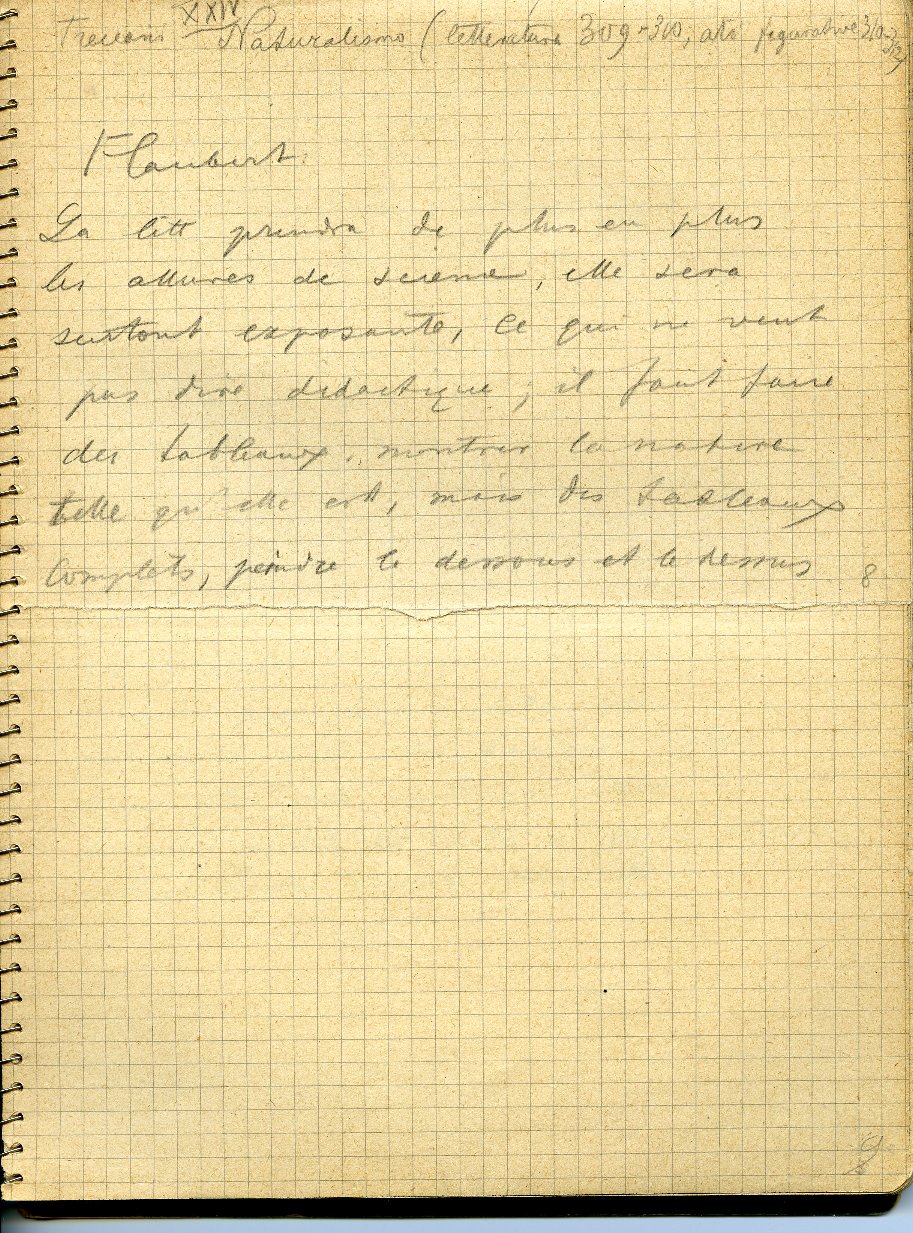 XXIV
Treccani Naturalismo (letteratura 309-310, arti figurative 310-
Flaubert.
La litt prendra de plus en plus
les allures de science, elle sera
surtout exposante, ce qui ne veut
pas dire didactique, il faut faire
des tableaux, montrer la nature
telle qu'elle est, mais des tableaux
complets, peindre le dessous et le dessus
8